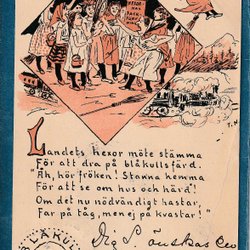 HEXOR-
NAS
Landets hexor möte stämma
För att dra på blåkullsfärd.
"Ah, hör, fröken! Stanna hemma
För att se om hus och härd!
Om det nu nödvändigt hastar,
Far på tåg, men ej på kvastar!"
Dig
önskas
BLÅKUL